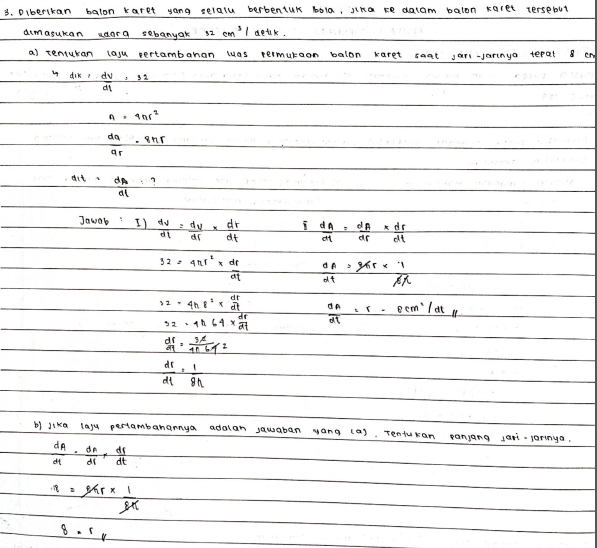 3. Diberikan balon karet yang selalu berbentuk bola, jika ke dalam balon karet tersebut
dimasukan udara sebanyak 32 cm³/detik.
a) Tentukan laju pertambahan luas permukaan balon karet saat jari-jarinya tepat 8 cm
↳ dik : dv/dt : 32
A = 4πr²
da/dr = 8πr
dit = dA/dt : ?
Jawab : I) dv/dt = dv/dr × dr/dt
32 = 4πr² × dr/dt
32 = 4π 8² × dr/dt
32 = 4π 64 × dr/dt
dr/dt = 32/4π 64 2
dr/dt = 1/8π
dA/dt = dA/dr × dr/dt
dA/dt = 8πr × 1/8π
dA/dt = r = 8 cm²/dt //
b) Jika laju pertambahannya adalah jawaban yang (a). Tentukan panjang jari-jarinya.
dA/dt = dA/dr × dr/dt
8 = 8πr × 1/8π
8 = r //